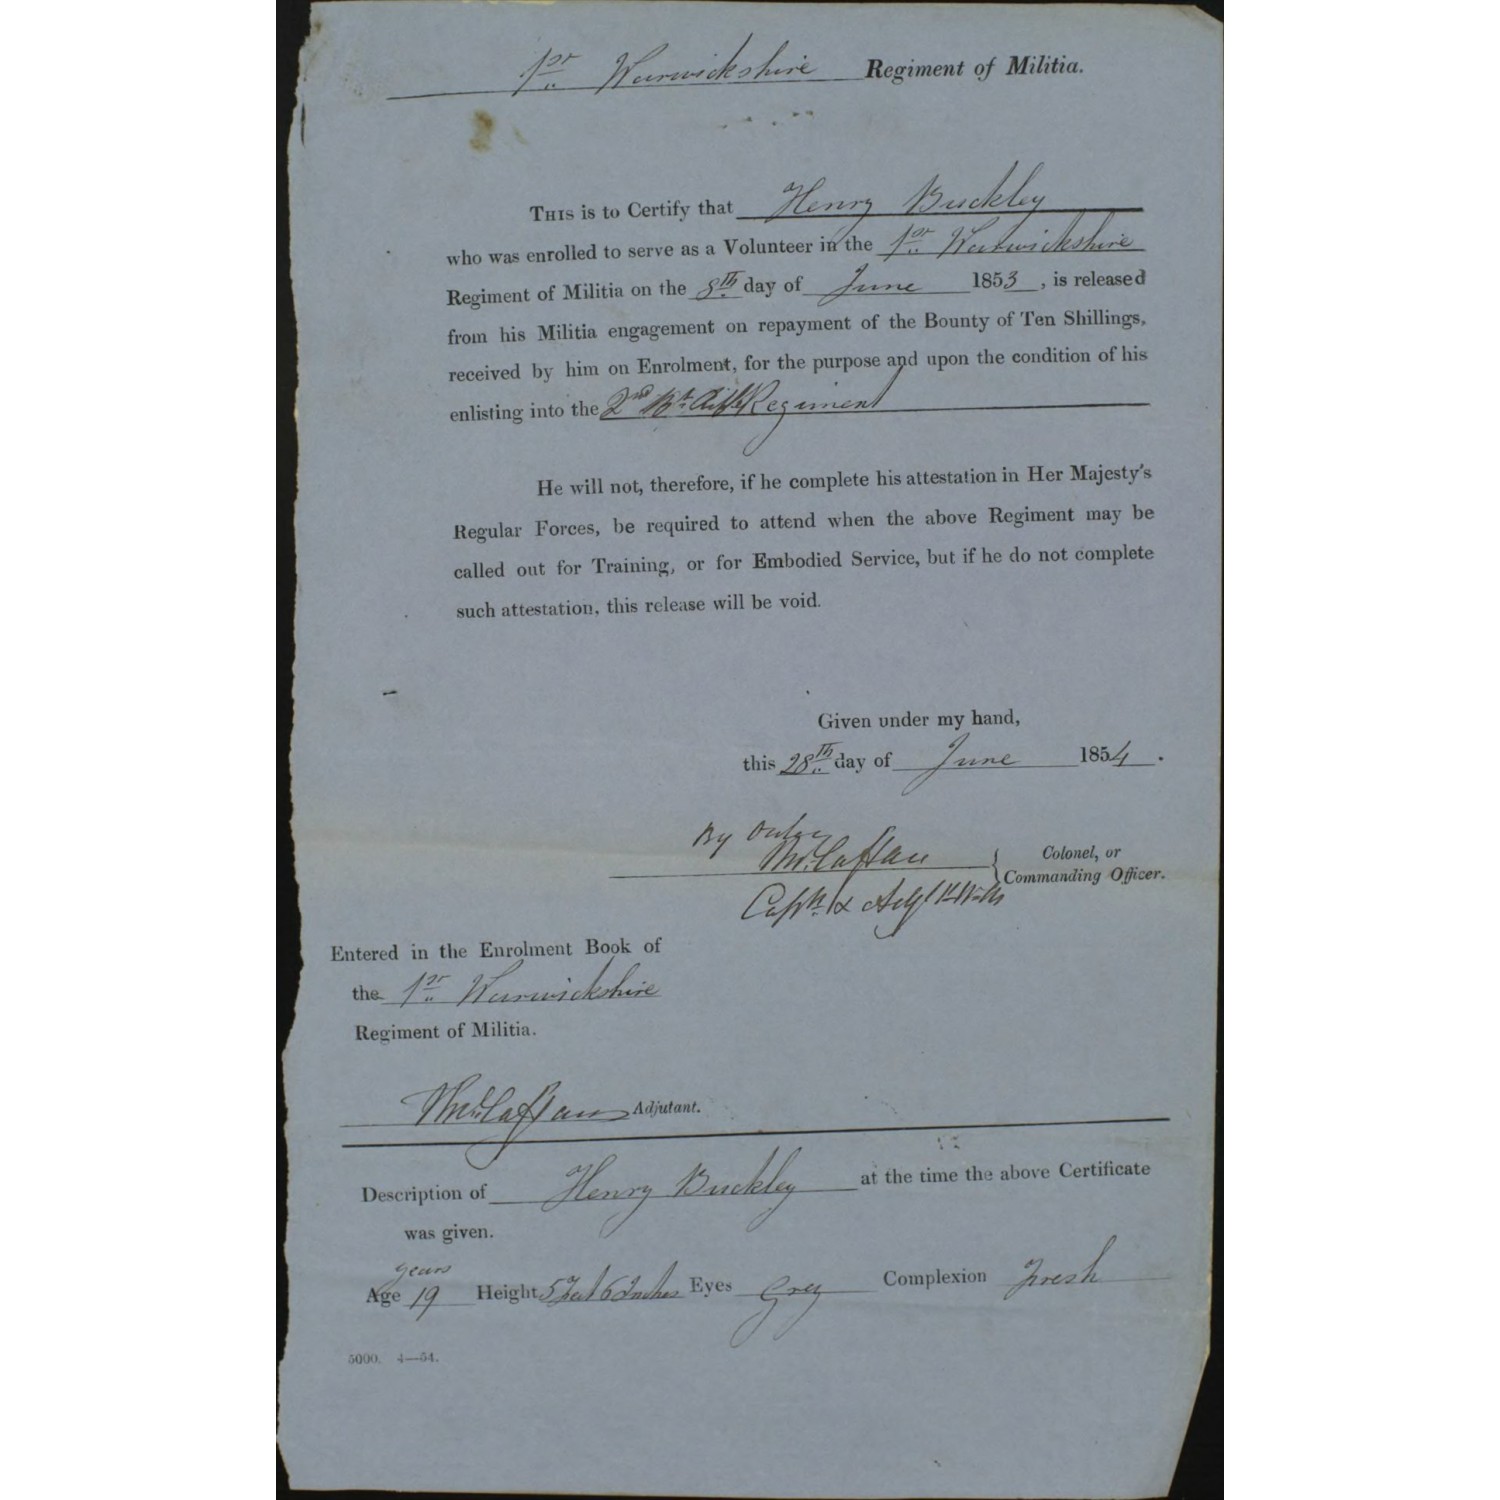 1st Warwickshire Regiment of Militia.
THIS is to Certify that Henry Buckley
who was enrolled to serve as a Volunteer in the 1st Warwickshire
Regiment of Militia on the 8th day of June 1853, is released
from his Militia engagement on repayment of the Bounty of Ten Shillings,
received by him on Enrolment, for the purpose and upon the condition of his
enlisting into the 2nd Bn Rifle Regiment
He will not, therefore, if he complete his attestation in Her Majesty's
Regular Forces, be required to attend when the above Regiment may be
called out for Training, or for Embodied Service, but if he do not complete
such attestation, this release will be void.
Given under my hand,
this 28th day of June 1854.
By order
Colonel, or
Commanding Officer.
Captn & Adjt
Entered in the Enrolment Book of
the 1st Warwickshire
Regiment of Militia.
Adjutant.
Description of Henry Buckley at the time the above Certificate
was given.
years
Age 19 Height 5 Feet 6 Inches Eyes Grey Complexion Fresh
5000. 4—54.